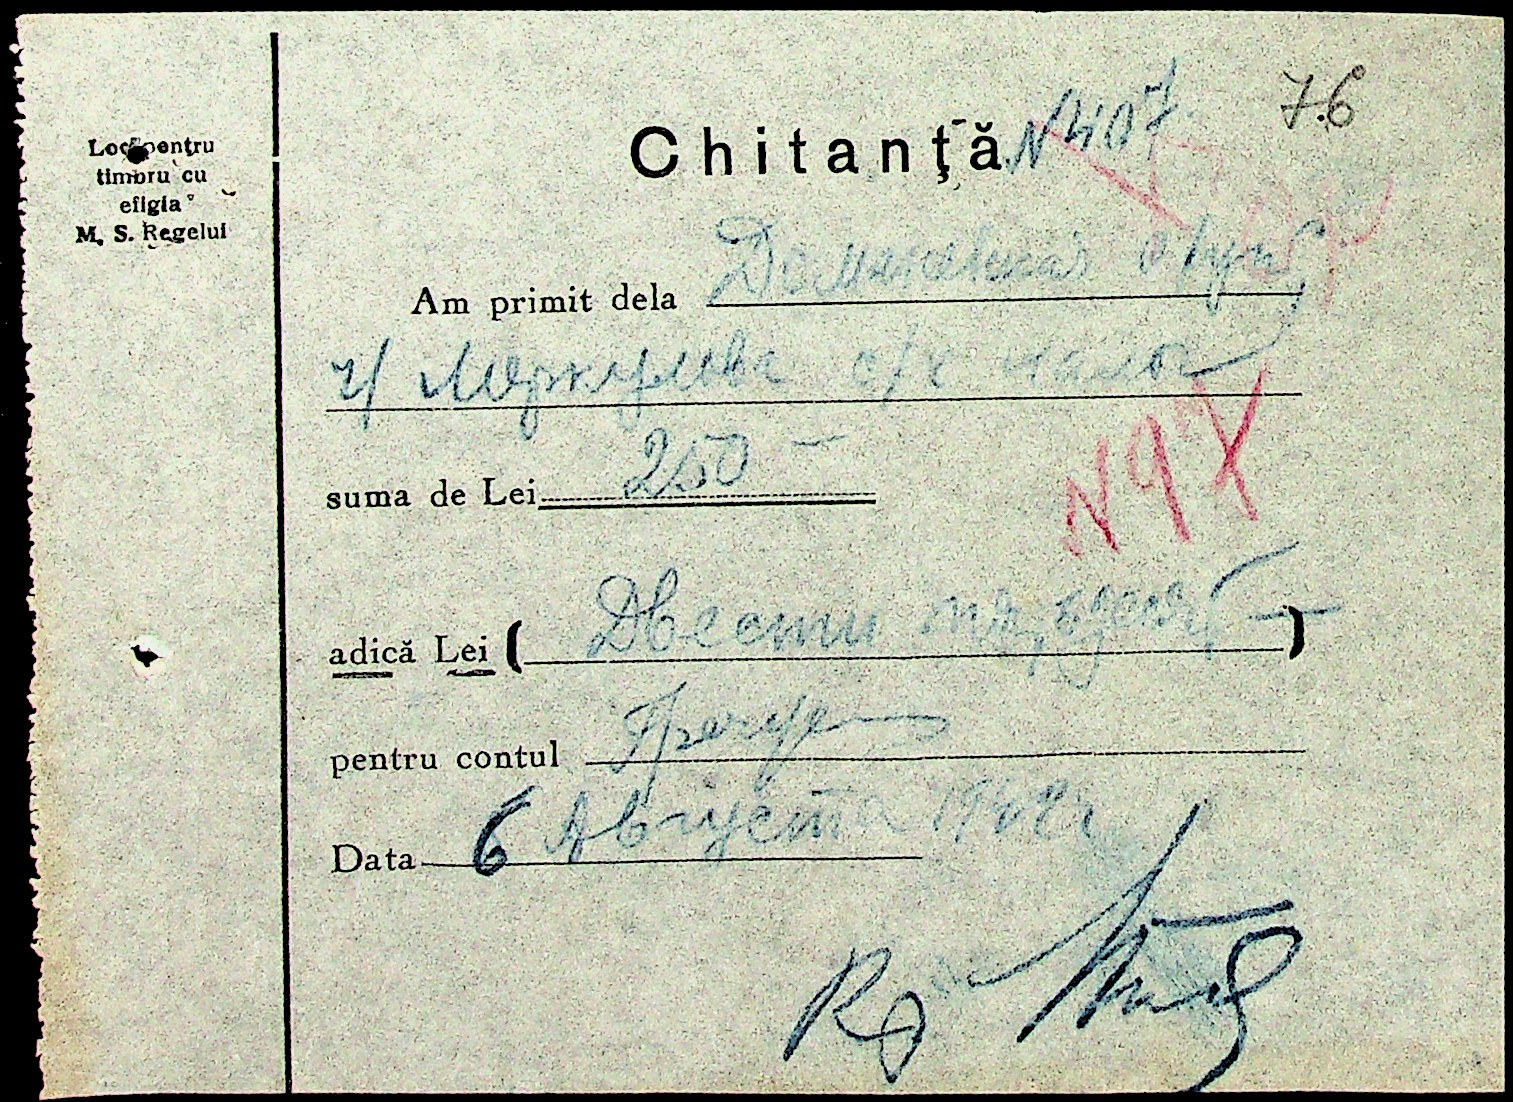 Loc pentru
timbru cu
efigia
M. S. Regelui
76
Chitanţă N 407
Am primit dela
ч/ Меркулова с/х налог
suma de Lei 250 —
N 97
adică Lei ( Двести пятьдесят — )
pentru contul
Data 6 Августа 1942 г